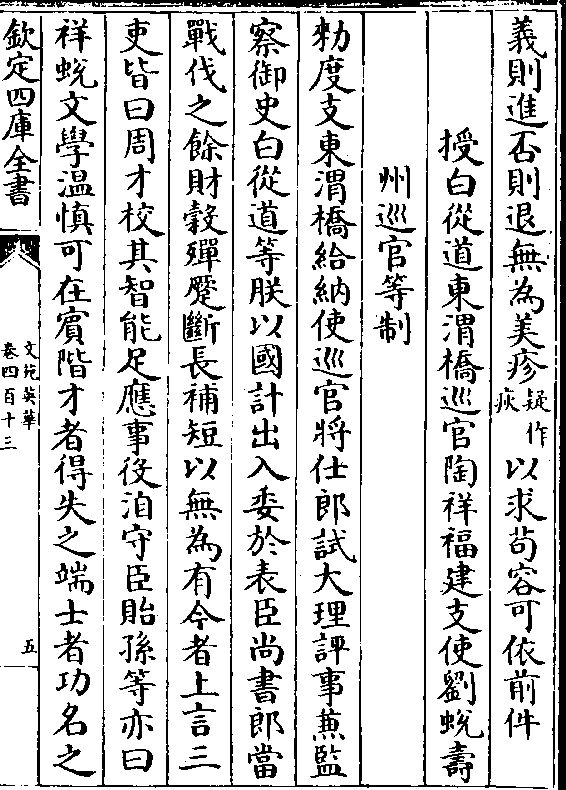 義則進否則退無為美疹疑作疢以求苟容可依前件
授白從道東渭橋巡官陶祥福建支使劉蛻壽
州巡官等制
勑度支東渭橋給納使巡官將仕郎試大理評事蕪監
察御史白從道等朕以國計出入委於表臣尚書郎當
戰伐之餘財穀殫蹙斷長補短以無為有今者上言三
吏皆曰周才校其智能足應事役洎守臣貽孫等亦曰
祥蛻文學温慎可在賓階才者得失之端士者功名之
欽定四庫全書
文苑英華
卷四百十三
五